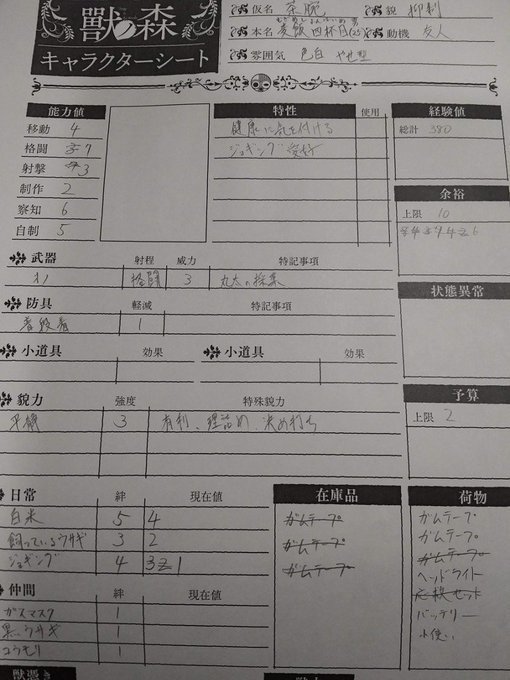 獸ノ森
キャラクターシート
仮名 茶碗
貌 抑制
本名 麦飯 四杯目
動機 友人
雰囲気 色白 やせ型
能力値
移動 4
格闘 7
射撃 3
制作 2
察知 6
自制 5
特性 使用
健康に気を付ける
ジョギング愛好
経験値
総計 380
余裕
上限 10
状態異常
予算
上限 2
武器 射程 威力 特記事項
オノ 格闘 3 丸太の採集
防具 軽減 特記事項
普段着 1
小道具 効果
小道具 効果
貌力 強度 特殊貌力
平静 3 有利、理詰め、決め打ち
日常 絆 現在値
白米 5 4
飼っているウサギ 3 2
ジョギング 4 3 2 1
仲間 絆 現在値
ガスマスク 1
黒ウサギ 1
コウモリ 1
在庫品
ガムテープ
ガムテープ
ガムテープ
荷物
ガムテープ
ガムテープ
ガムテープ
ヘッドライト
応救セット
バッテリー
小使い
獣憑き